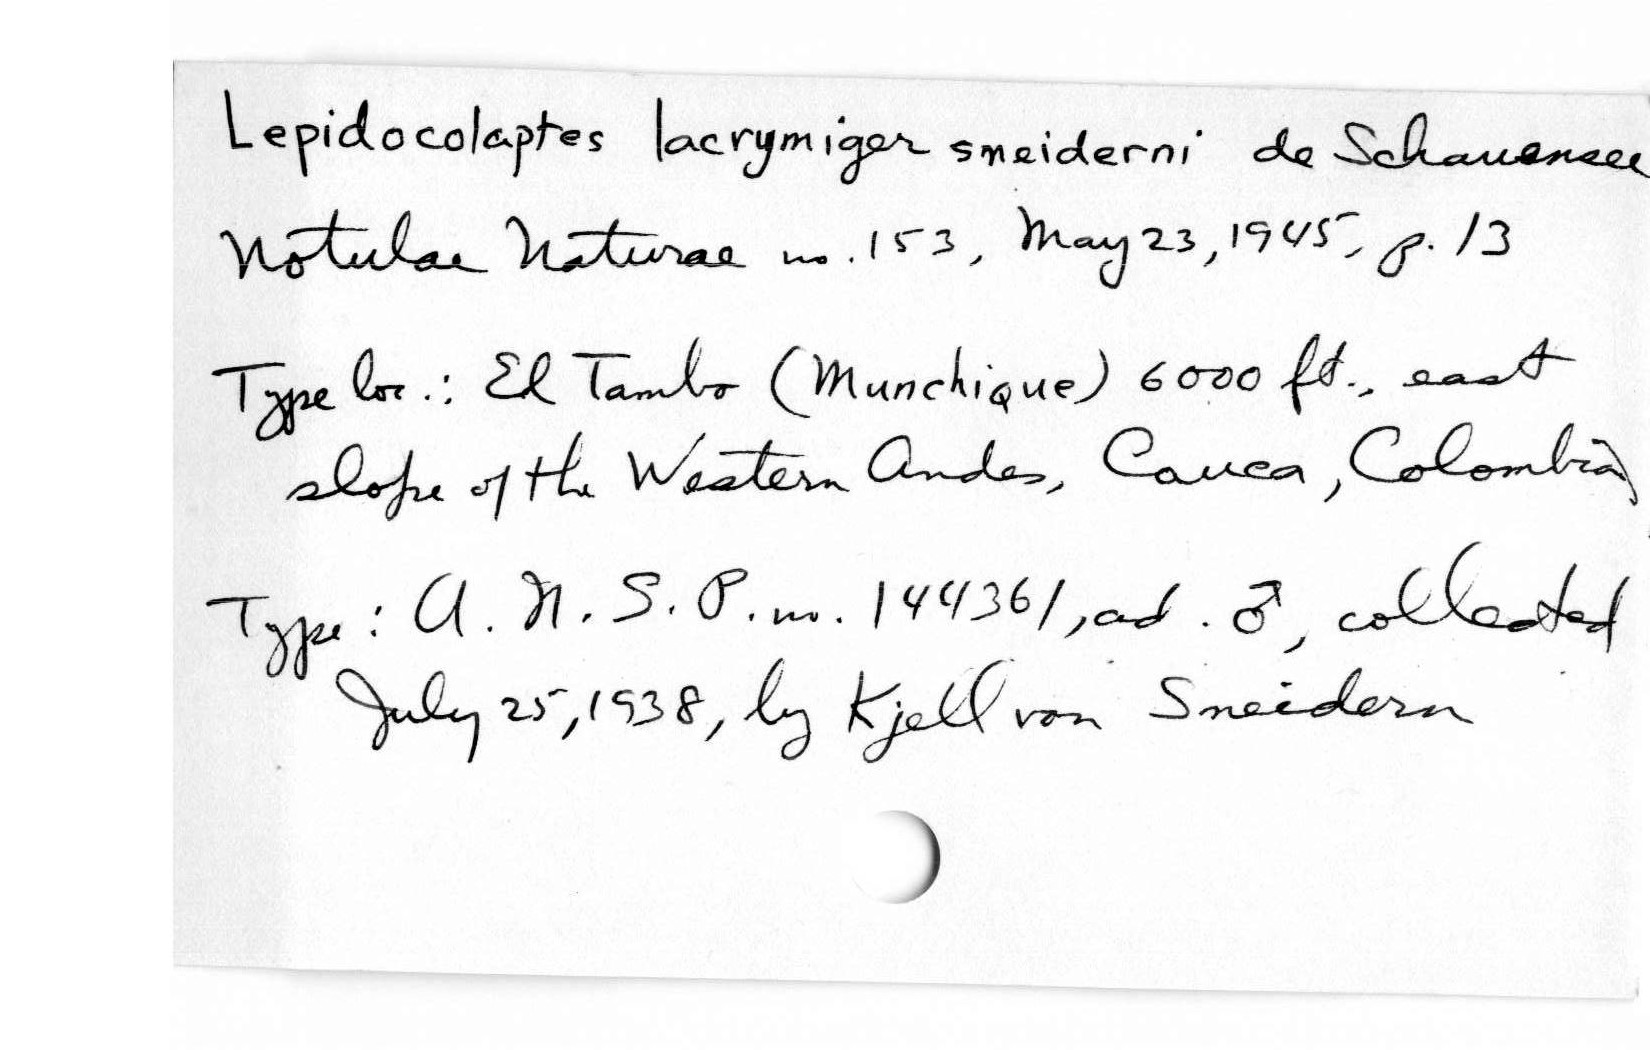 Lepidocolaptes lacrymiger sneiderni de Schauensee
Notulae Naturae no. 153, May 23, 1945, p. 13
Type loc.: El Tambo (Munchique) 6000 ft., east
slope of the Western Andes, Cauca, Colombia
Type: A. N. S. P. no. 144361, ad. ♂, collected
July 25, 1938, by Kjell von Sneidern